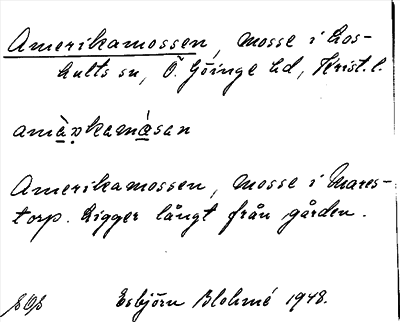 Amerikamossen, mosse i Los-
hults sn, Ö. Göinge hd, Krist. l.
amä̀rkamásan
Amerikamossen, mosse i Mares-
torp. Ligger långt från gården.
Esbjörn Blohmé 1948.